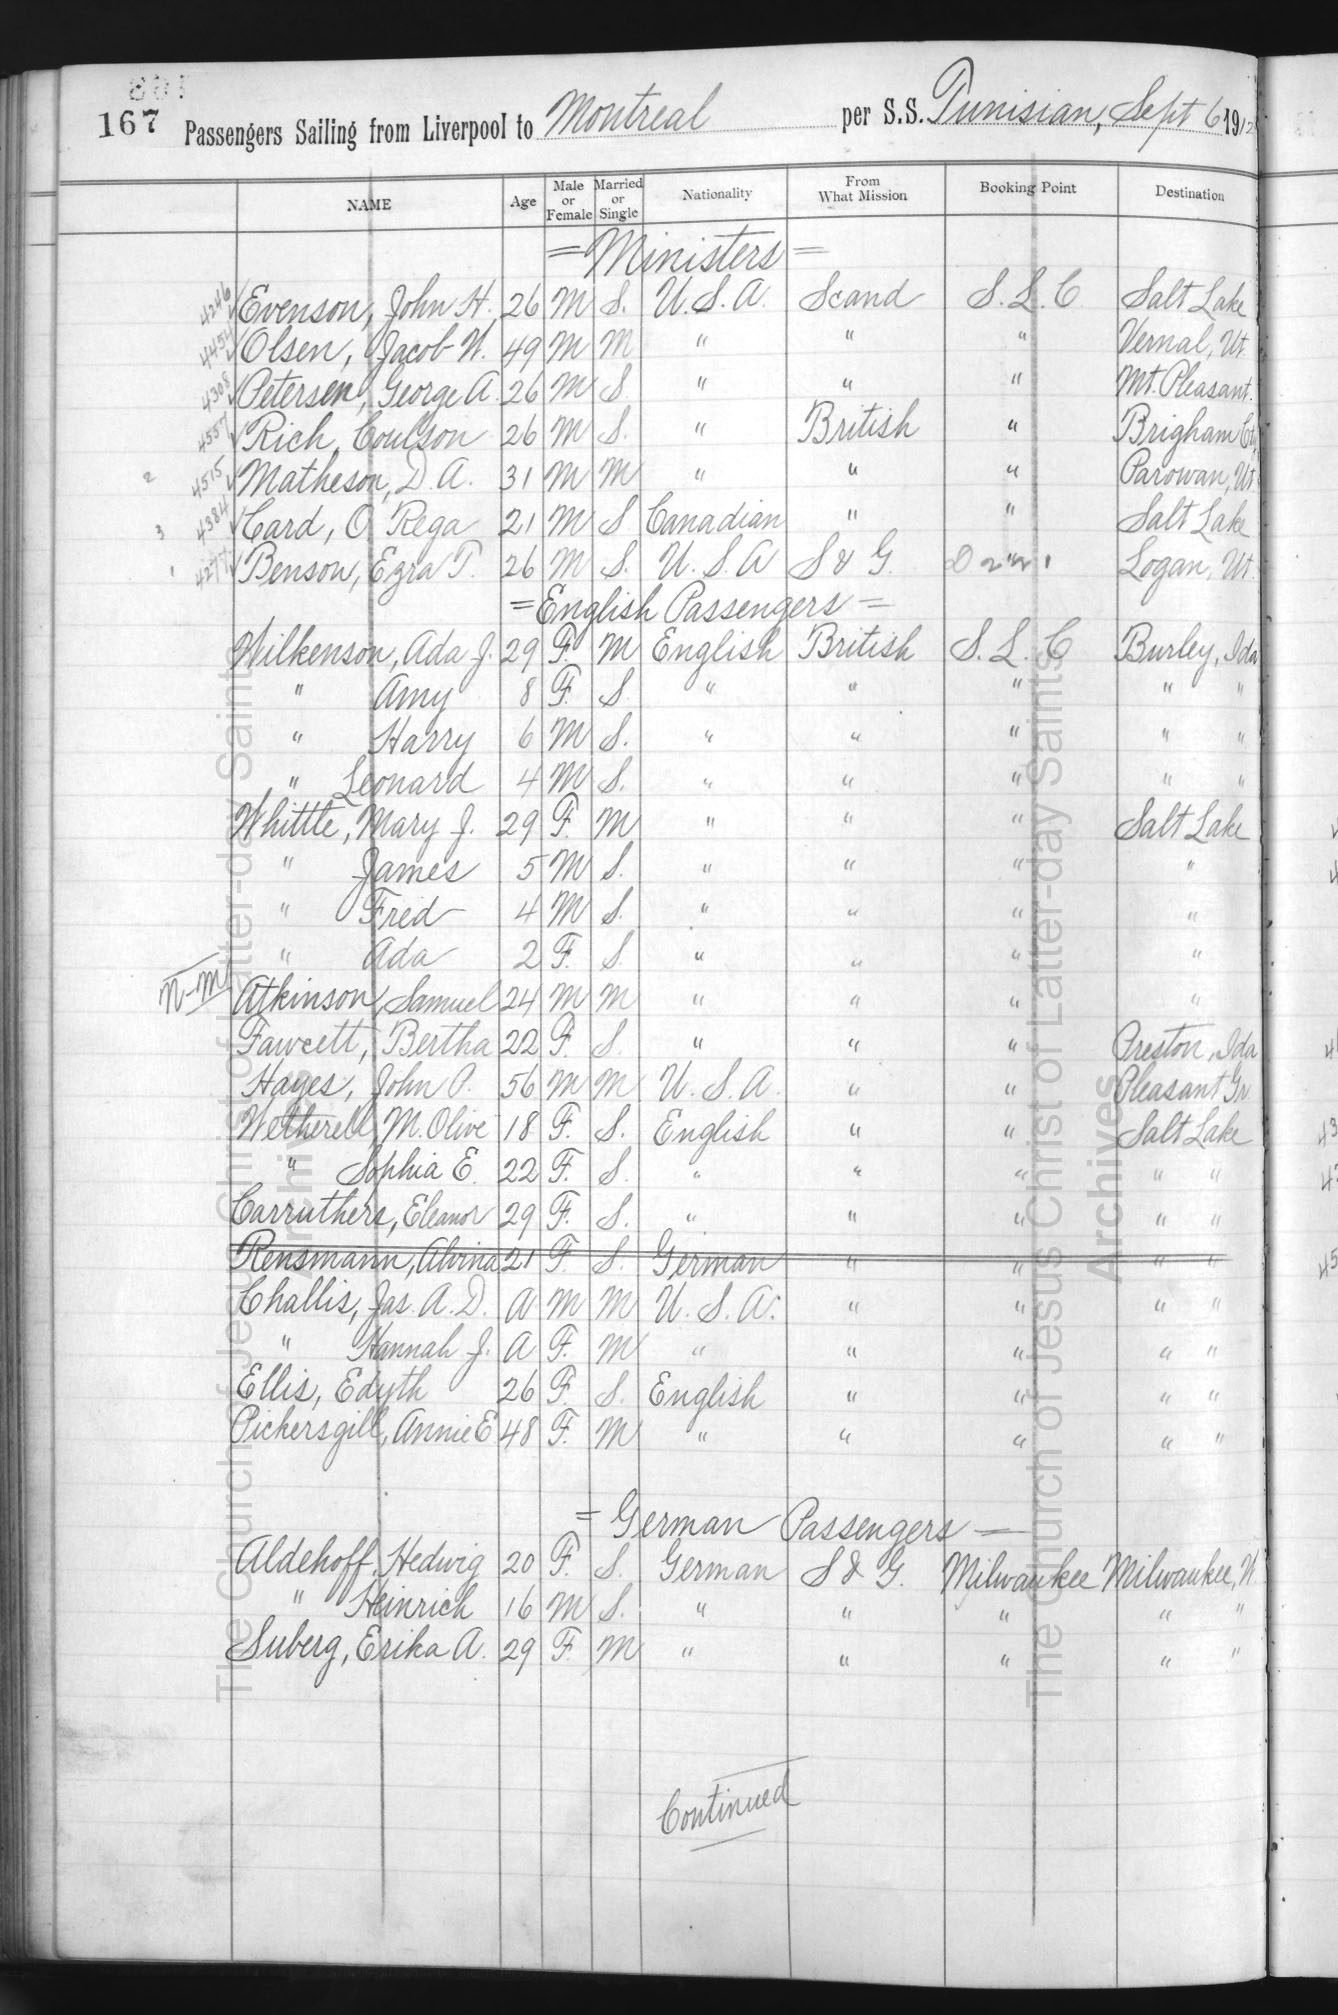 167 Passengers Sailing from Liverpool to Montreal per S.S. Tunisian, Sept 6 1912
NAME Age Male or Female Married or Single Nationality From What Mission Booking Point Destination
= Ministers =
4246 ✓ Evenson, John H. 26 M S. U.S.A. Scand S.L.C Salt Lake
4454 ✓ Olsen, Jacob W. 49 M M " " " Vernal, Ut
4308 ✓ Petersen, George A. 26 M S. " " " Mt. Pleasant.
4557 ✓ Rich, Coulson 26 M S. " British " Brigham Cty
2 4515 ✓ Matheson, D. A. 31 M M " " " Parowan, Ut
3 4384 ✓ Card, O. Rega 21 M S Canadian " " Salt Lake
1 4277 ✓ Benson, Ezra T. 26 M S. U.S.A S & G. Logan, Ut.
= English Passengers =
Wilkenson, Ada J. 29 F. M English British S.L.C Burley, Ida
" Amy 8 F. S. " " " " "
" Harry 6 M S. " " " " "
" Leonard 4 M S. " " " " "
Whittle, Mary J. 29 F. M " " " Salt Lake
" James 5 M S. " " " "
" Fred 4 M S. " " " "
" Ada 2 F. S. " " " "
N-M Atkinson, Samuel 24 M M " " " "
Fawcett, Bertha 22 F. S. " " " Preston, Ida
Hayes, John P. 56 M M U.S.A. " " Pleasant Gr.
Wetherell, M. Olive 18 F. S. English " " Salt Lake
" Sophia E. 22 F. S. " " " " "
Carruthers, Eleanor 29 F. S. " " " " "
Rensmann, Alvina 21 F. S. German " " " "
Challis, Jas. A. D. A M M U.S.A. " " " "
" Hannah J. A F. M " " " " "
Ellis, Edyth 26 F. S. English " " " "
Pickersgill, Annie E 48 F. M " " " " "
= German Passengers =
Aldehoff, Hedwig 20 F. S. German S & G. Milwaukee Milwaukee, W
" Heinrich 16 M S. " " " " "
Suberg, Erika A. 29 F. M " " " " "
Continued
The Church of Jesus Christ of Latter-day Saints
Archives
The Church of Jesus Christ of Latter-day Saints
Archives